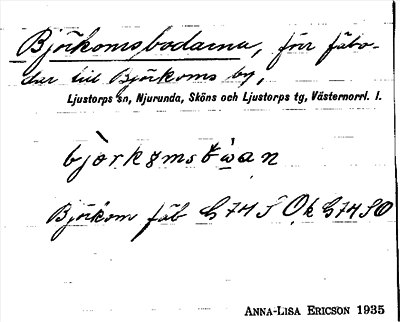 Björkomsbodarna, förr fäbo-
dar till Björkoms by,
Ljustorps sn, Njurunda, Sköns och Ljustorps tg, Västernorrl. l.
Björkom fäb G74S Ök G74SO
ANNA-LISA ERICSON 1935